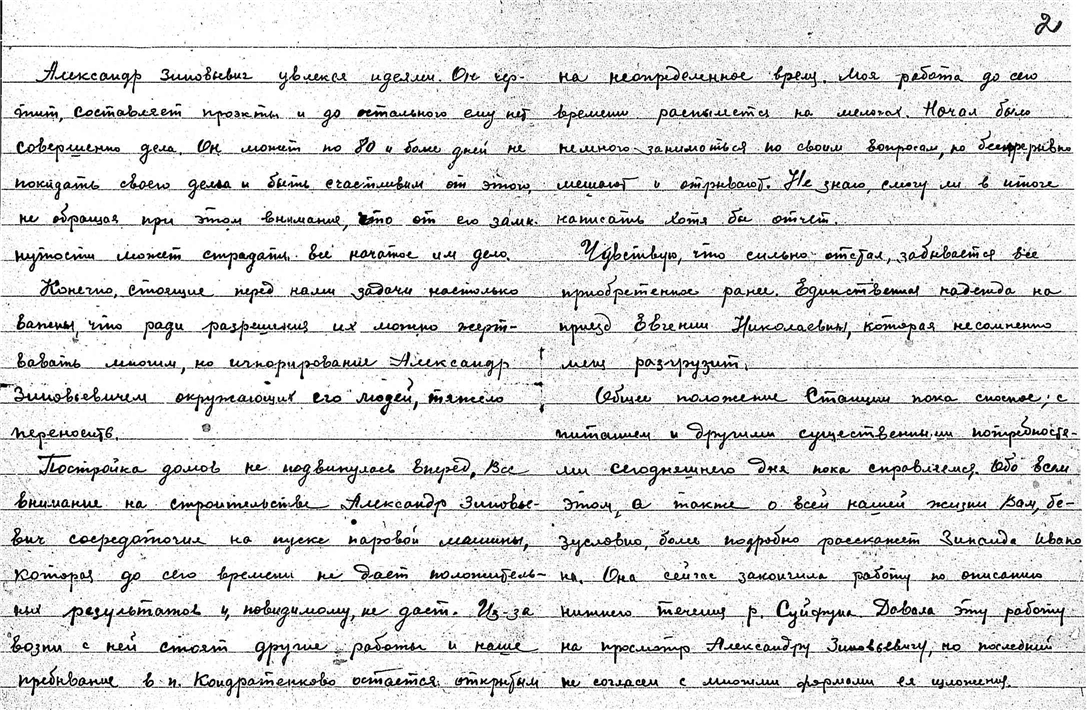 2
Александр Зиновьевич увлекся идеями. Он чер-
тит, составляет проэкты и до остального ему нет
совершенно дела. Он может по 80 и более дней не
покидать своего дела и быть счастливым от этого,
не обращая при этом внимание, что от его замк-
нутости может страдать всё начатое им дело.
Конечно, стоящие перед нами задачи настолько
важны, что ради разрешения их можно жерт-
вовать многим, но игнорирование Александр
Зиновьевичем окружающих его людей, тяжело
переносить.
Постройка домов не подвинулась вперёд. Все
внимание на строительстве Александр Зиновье-
вич сосредоточил на пуске паровой машины,
которая до сего времени не дает положитель-
ных результатов и, повидимому, не даст. Из-за
возни с ней стоят другие работы и наше
пребывание в п. Кондратенково остается открытым
на неопределенное время. Моя работа до сего
времени распыляется на мелочах. Начал было
немного заниматься по своим вопросам, но беспрерывно
мешают и отрывают. Не знаю, смогу ли в итоге
написать хотя бы отчет.
Чувствую, что сильно отстал, забывается все
приобретенное ранее. Единственная надежда на
приезд Евгении Николаевны, которая несомненно
меня разгрузит.
Общее положение Станции пока сносное; с
питанием и другими существенными потребностя-
ми сегодняшнего дня пока справляемся. Обо всем
этом, а также о всей нашей жизни Вам, бе-
зусловно, более подробно расскажет Зинаида Ивано
на. Она сейчас закончила работу по описанию
нижнего течения р. Суйфуна. Давала эту работу
на просмотр Александру Зиновьевичу, но последний
не согласен с многими формами ея изложения.